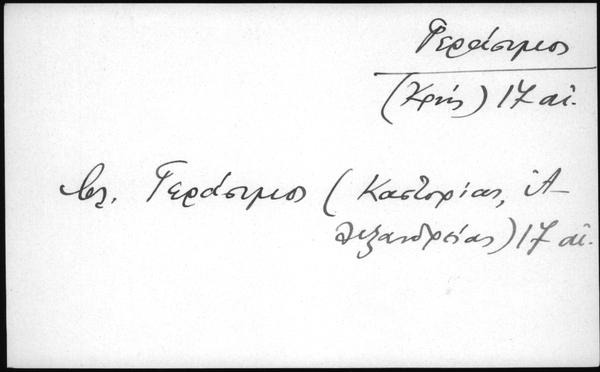 Γεράσιμος
(Κρής) 17 αἰ.
βλ. Γεράσιμος (Καστορίας, Ἀ-
λεξανδρείας) 17 αἰ.